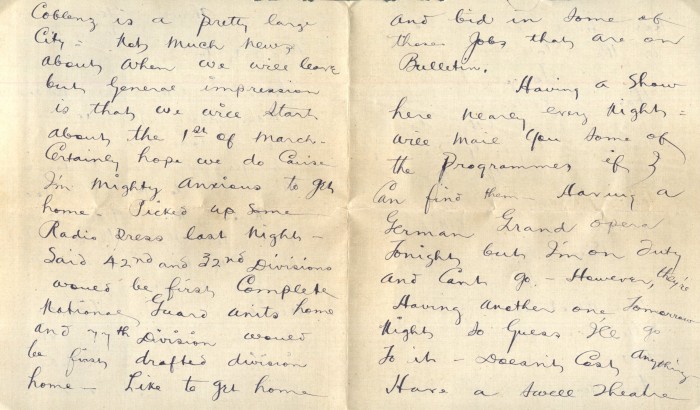 Coblenz is a pretty large
City = Not much news
about when we will leave
but General impression
is that we will start
about the 1st of March -
Certainly hope we do Cause
I'm Mighty Anxious to get
home - Picked up some
Radio Press last Night -
Said 42nd and 32nd Divisions
would be first Complete
National Guard units home
and 77th Division would
be first drafted division
home - Like to get home
and bid in some of
those Jobs that are on
Bulletin.
Having a Show
here nearly every Night =
will mail you some of
the Programmes if I
Can find them - Having a
German Grand opera
Tonight but I'm on Duty
and Can't go. - However, they're
Having another one Tomorrow
Night so Guess I'll go
To it - Doesn't Cost Anything
Have a swell Theatre